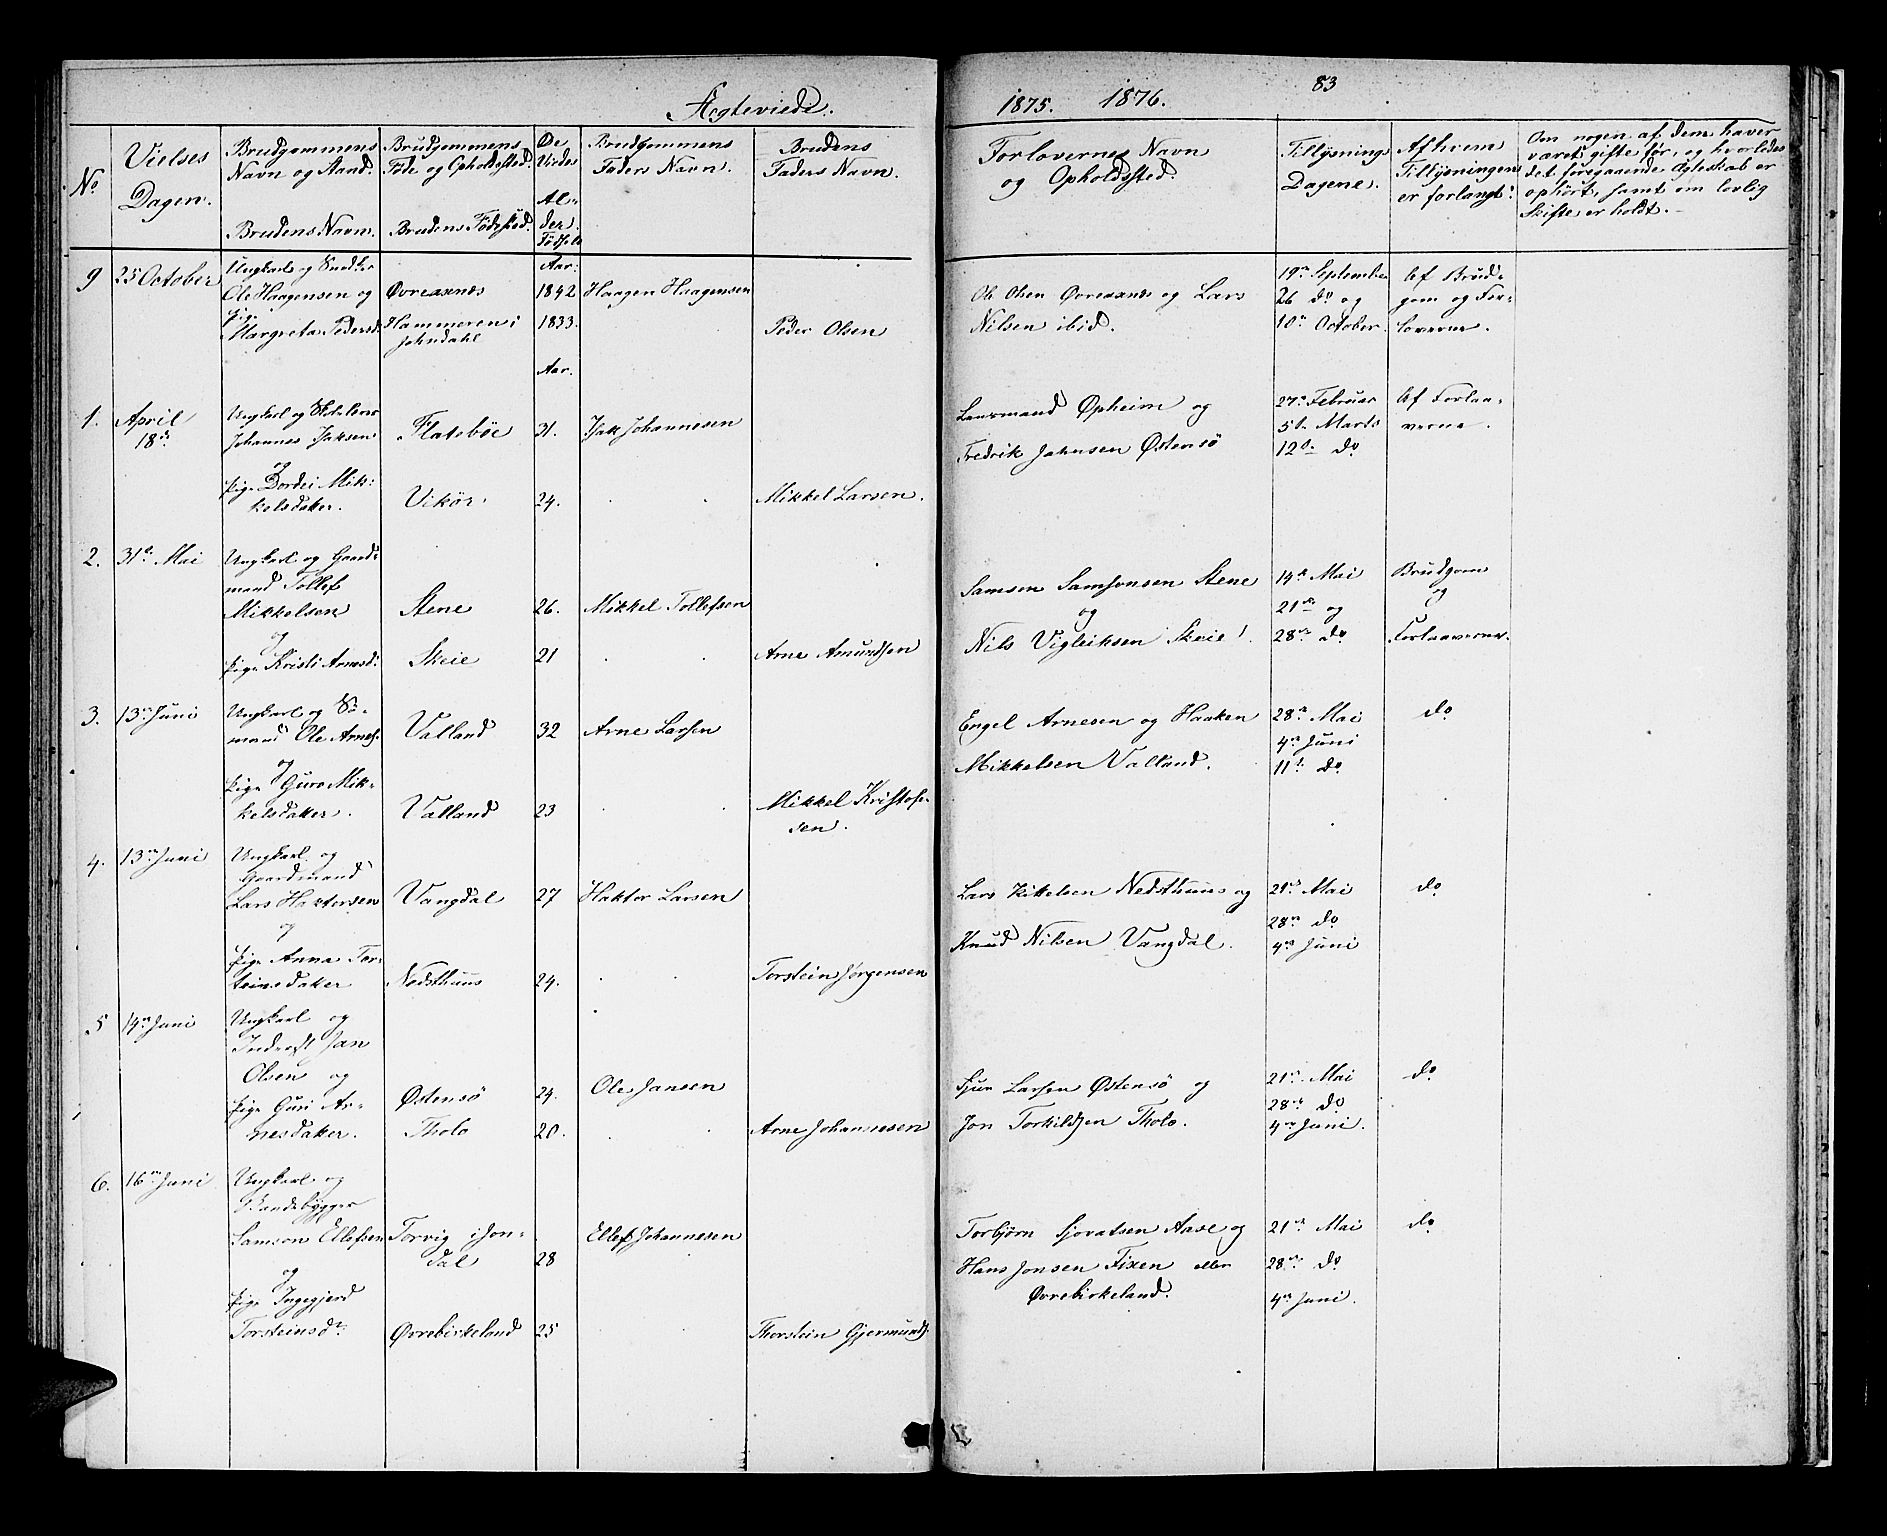 Ægteviede.
1875. 1876.
83
No
Vielses Dagen.
Brudgommens Navn og Stand.
Brudens Navn.
Brudgommens Føde og Opholdssted.
Brudens Fødested.
De Viedes Alder. Fødsels
Brudgommens Faders Navn.
Brudens Faders Navn.
Forlovernes Navn og Opholdssted.
Tillysnings Dagene.
Af hvem Tillysningen er forlangt.
Om nogen af dem haver
været gifte før, og hvorledes
det foregaaende Ægteskab er
ophørt, samt om lovlig
Skifte er holdt.
9 25 October
Ungkarl og Snedker
Ole Haagensen og
Pige
Margreta Pedersd.
Øvreaxnæs
Hammeren i
Johndahl
Aar:
1842
1833.
Haagen Haagensen
Peder Olsen
Ole Olsen Øvreaxnæs og Lars
Nilsen ibid.
19de September
26 do og
10de October.
Af Brud-
gom og For-
loverne.
Aar.
1. April
18de
Ungkarl og
Johannes Jaksen
og
Pige Bordei Mik-
kelsdatter.
Flatebøe
Vikør.
31.
24.
Jak Johannesen
Mikkel Larsen.
Lensmand Opheim og
Fredrik Johnsen Østensö
27de Februar
5de Marts
12de do
Af Forlaa-
verne.
2. 31te Mai
Ungkarl og Gaard-
mand Tollef
Mikkelsen
og
Pige Kristi Arnesd:
Stene
Skeie
26.
21
Mikkel Tollefsen
Arne Amundsen
Samson Samsonsen Stene
og
Nils Vigleiksen Skeie.
14de Mai
21de og
28de do
Brudgom
og
Forlaaverne.
3. 13de Juni
Ungkarl og Sö-
mand Ole Arnes.
og
Pige Guro Mik-
kelsdatter.
Valland
Valland
32
23
Arne Larsen
Mikkel Kristofer-
sen.
Engel Arnesen og Haaken
Mikkelsen Valland.
28de Mai
4de Juni
11te do
do
4. 13de Juni
Ungkarl og
Gaardmand
Lars Haktorsen
og
Pige Anna Tor-
steinsdatter
Vangdal
Nedsthuus
27
24.
Haktor Larsen
Torstein Jørgensen
Lars Kittelsen Nedsthuus og
Knud Nilsen Vangdal.
21de Mai
28de do
4de Juni
do
5 14de Juni
Ungkarl og
Inderst Jan
Olsen og
Pige Guri Ar-
nesdatter.
Østensö
Tholo
24.
20.
Ole Jansen
Arne Johannesen
Sjur Larsen Østensö og
Jon Torkildsen Tholo.
21de Mai
28de do
4de Juni.
do
6. 16de Juni
Ungkarl og
Strandsbygger
Samson Ellefsen
og
Pige Ingegjerd
Torsteinsdr.
Torvig i Jon-
dal
Øvrebirkeland
28
25
Ellef Johannesen
Thorstein Gjermunds.
Torbjørn Sjovatsen Aase og
Hans Jonsen Fixen eller
Øvrebirkeland.
21de Mai
28de do
4de Juni.
do